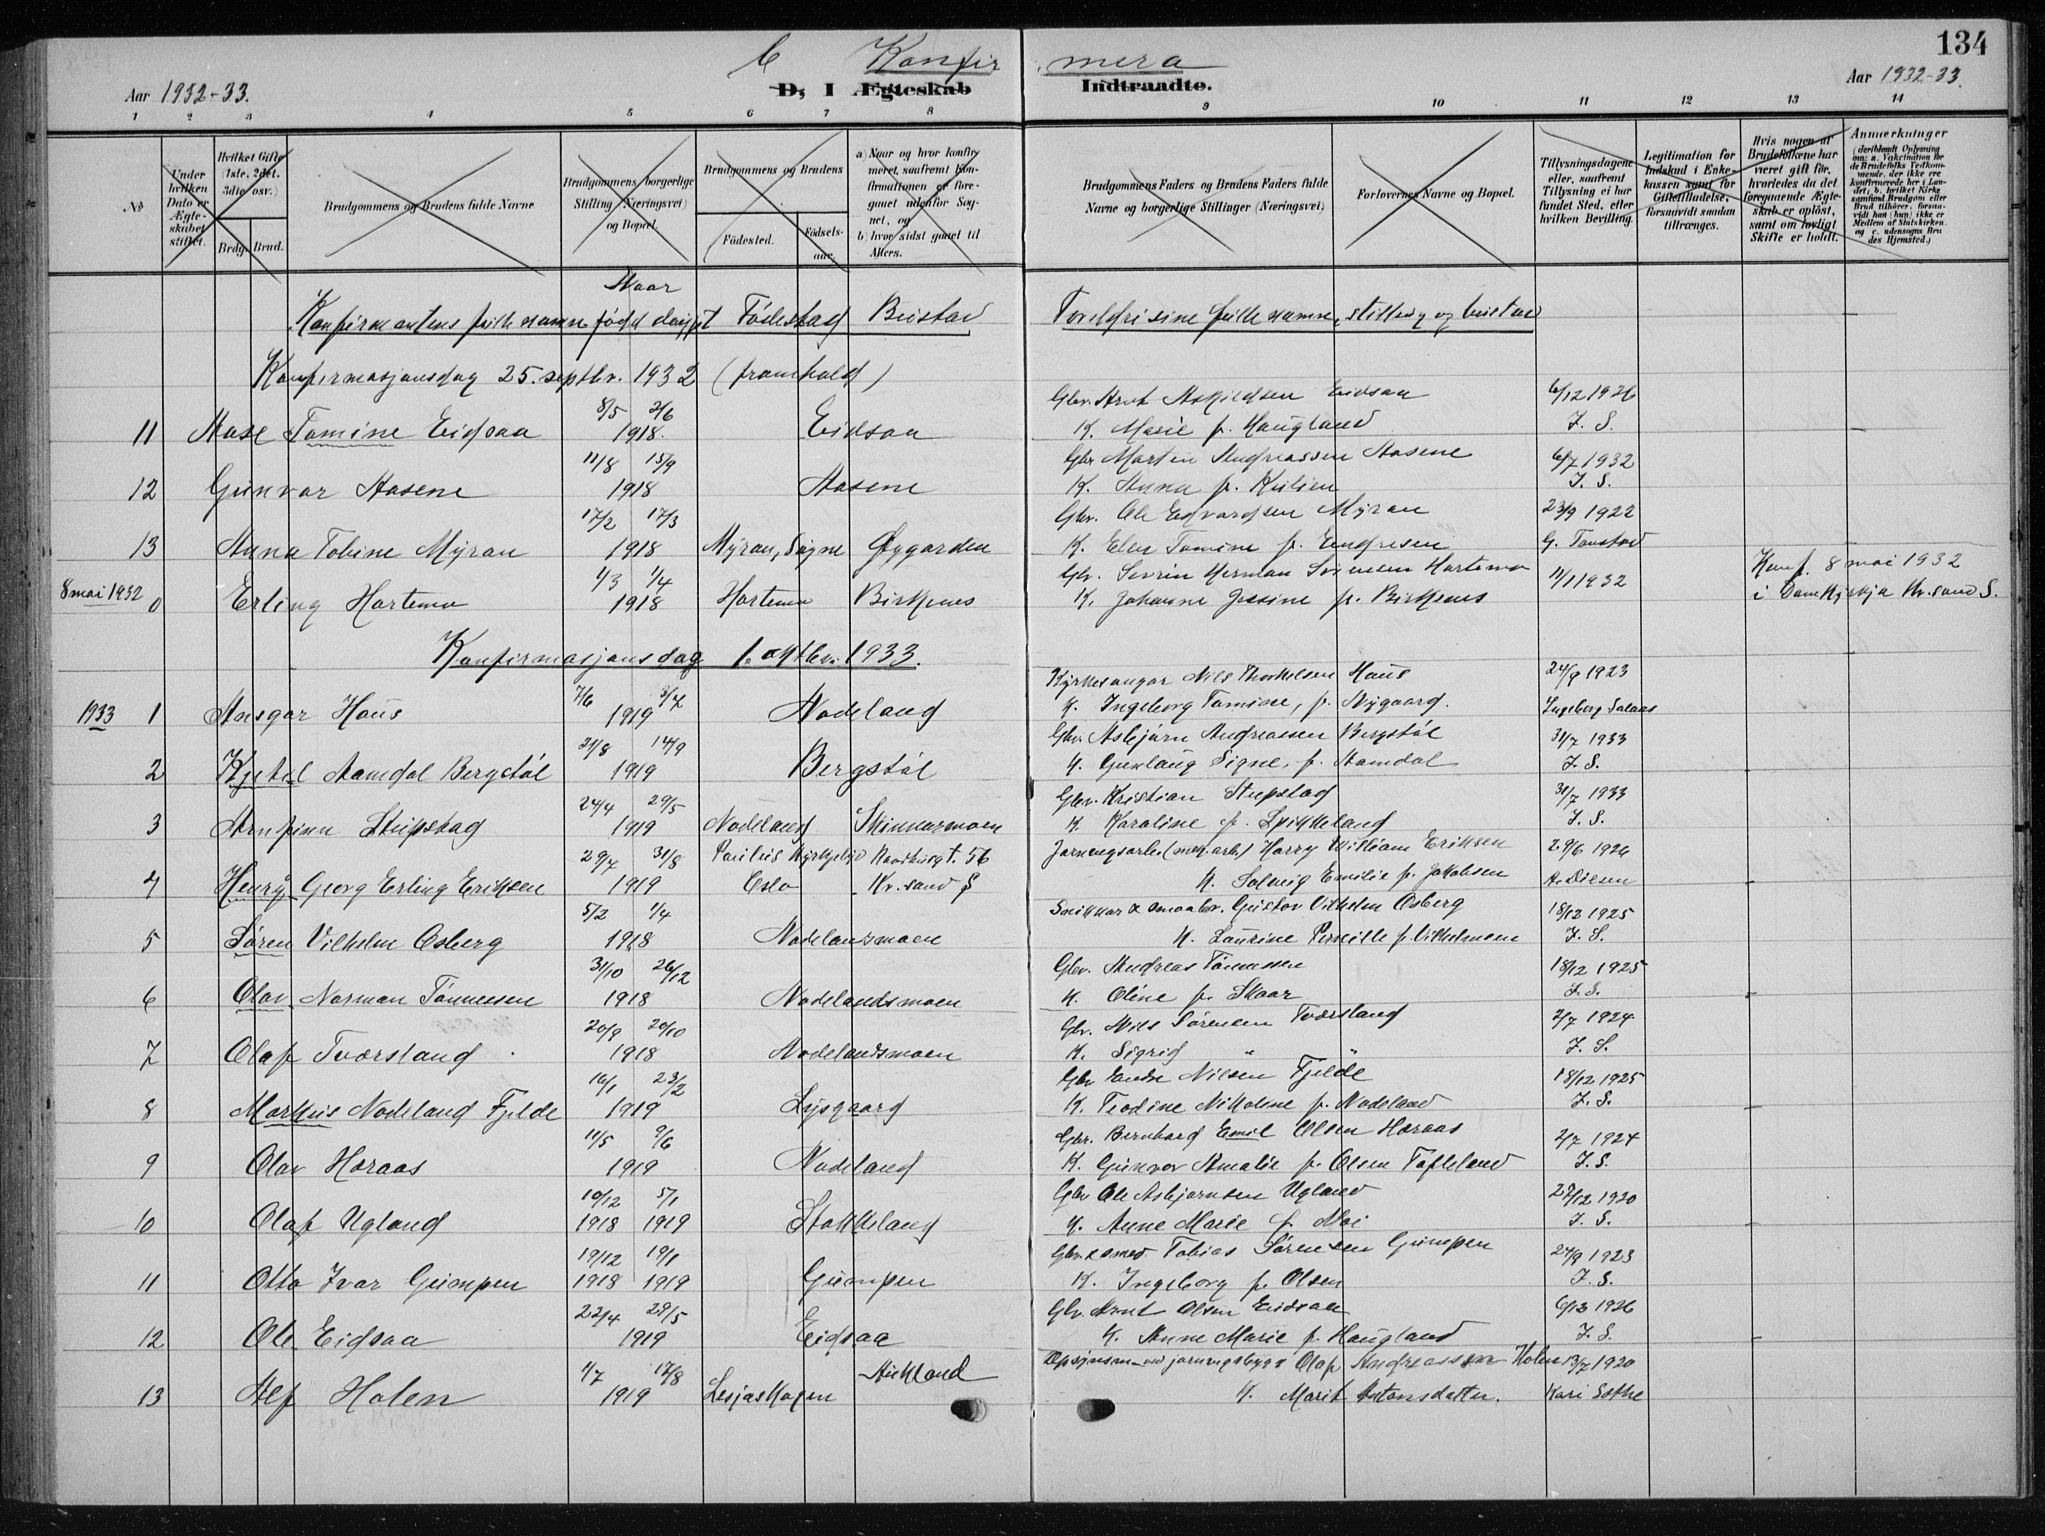 134
C Konfir mera
Aar 1932-33.
D, I Ægteskab Indtraadte.
Aar 1932-33.
1 2 3 4 5 6 7 8 9 10 11 12 13 14
No
Under hvilken Dato er Ægteskabet stiftet.
Hvilket Gifte (1ste, 2det, 3die osv.)
Brdg. Brud.
Brudgommens og Brudens fulde Navne
Brudgommens borgerlige Stilling (Næringsvei) og Bopæl.
Brudgommens og Brudens
Fødested.
Fødselsaar.
a) Naar og hvor konfirmeret, saafremt Konfirmationen er foregaaet udenfor Sognet, og
b) hvor sidst gaaet til Alters.
Brudgommens Faders og Brudens Faders fulde Navne og borgerlige Stillinger (Næringsvei)
Forlovernes Navne og Bopæl.
Tillysningsdagene eller, saafremt Tillysning ei har fundet Sted, efter hvilken Bevilling.
Legitimation for Indskud i Enkekassen samt for Giftetilladelse, forsaavidt saadan tiltrænges.
Hvis nogen af Brudefolkene har været gift før, hvorledes da det foregaaende Ægteskab er opløst, samt om lovligt Skifte er holdt.
Anmerkninger
(deriblandt Oplysning om: a. Vakcination for de Brudefolks Vedkommende, der ikke ere konfirmerede her i Landet; b. hvilket Kirkesamfund Brudgom eller Brud tilhører, forsaavidt han (hun) ikke er Medlem af Statskirken, og c. udensogns Brudes Hjemsted.)
Naar
Konfirmantens fulle namn født døypt Fødestad Bustad Foreldri sine fulle namn, stilling og bustad
Konfirmasjonsdag 25. septbr. 1932 (framhald)
Gbr. Arnt Askildsen Eidsaa 6/12 1926
8/5 2/6
11 Aase Tomine Eidsaa 1918. Eidsaa K. Marie f. Haugland J. S.
11/8 15/9 Gbr Martin Andreassen Aasene 6/7 1932
12 Gunvor Aasene 1918 Aasene K. Anna f. Kulien J. S.
17/2 17/3 Gbr. Ole Edvardsen Myran 23/9 1922
13 Anna Tobine Myran 1918 Myran, Søgne Øygarden K. Elen Tomine f. Endresen G. Tonstad
1/3 1/4 Gbr. Severin Herman Svensen Hortemo 11/1 1932 Konf. 8 mai 1932
8 mai 1932 0 Erling Hortemo 1918 Hortemo Birkenes K. Johanne Jossine f. Birkenes i Domkyrkja Kr.sand S.
Konfirmasjonsdag 1. oktbr. 1933.
7/6 3/7 Kyrkesongar Nils Thorkelsen Haus 24/9 1923
1933 1 Ansgar Haus 1919 Nodeland K. Ingeborg Tomine, f. Nygaard. Ingeborg Salaas
21/8 14/9 Gbr. Asbjørn Andreasen Bergstøl 31/7 1933
2 Kjetel Aamdal Bergstøl 1919 Bergstøl K. Gunlaug Signe, f. Aamdal J. S.
24/4 29/5 Gbr. Kristian Stupstad 31/7 1933
3 Arnfinn Stupstad 1919 Nodeland Skinnarmoen K. Karoline f. Spikkeland J. S.
29/7 31/8 Paulus Kyrkjelyd t. 56 Jarnvegsarb. Harry William Eriksen 29/6 1926
4 Henry Georg Erling Eriksen 1919 Oslo Kr. sand S K. Solveig Emilie f. Jakobsen
5/2 1/4 Snikkar & smaabr. Gustav Vilhelm Osberg 18/12 1925
5 Søren Vilhelm Osberg 1918 Nodelansmoen K. Laurine Pernille f. Vilhelmsen J. S.
31/10 26/12 Gbr. Andreas Tønnessen 18/12 1925
6 Olav Norman Tønnessen 1918 Nodelandsmoen K. Oline f. Skaar J. S.
20/9 20/10 Gbr. Nils Sørensen Tværsland 2/7 1924
7 Olaf Tværsland 1918 Nodelandsmoen K. Sigrid " " J. S.
16/1 23/2 Gbr Nilsen Fjelde 18/12 1925
8 Markus Nodeland Fjelde 1919 Lysgaard K. Teodine Nikoline f. Nodeland J. S.
11/5 9/6 Gbr. Bernhard Emil Olsen Høraas 2/7 1924
9 Olav Høraas 1919 Nodeland K. Gunvor Amalie f. Olsen Tofteland J. S.
10/12 5/1 Gbr Ole Asbjørnsen Ugland 27/12 1920
10 Olaf Ugland 1918 1919 Stokkeland K. Anne Marie f. Moi J. S.
19/12 19/1 Gbr. & smed Tobias Sørensen Gumpen 24/9 1923
11 Otto Ivar Gumpen 1918 1919 Gumpen K. Ingeborg f. Olsen J. S.
22/4 29/5 Gbr. Arnt Olsen Eidsaa 6/12 1926
12 Ole Eidsaa 1919 Eidsaa K. Anne Marie f. Haugland J. S.
1/7 17/8 Aukland Opsynsm. ved jarnvegsbygg Olaf Andreassen Holen 13/7 1920
13 Alf Holen 1919 Lesjaskogen K. Marit Antonsdatter. Kari